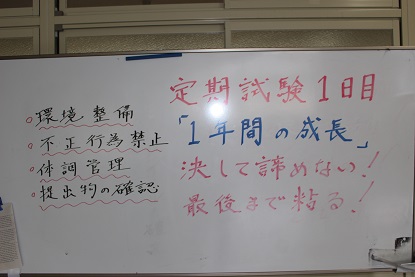 定期試験1日目
「1年間の成長」
決して諦めない!
最後まで粘る!
。環境整備
。不正行為禁止
。体調管理
。提出物の確認